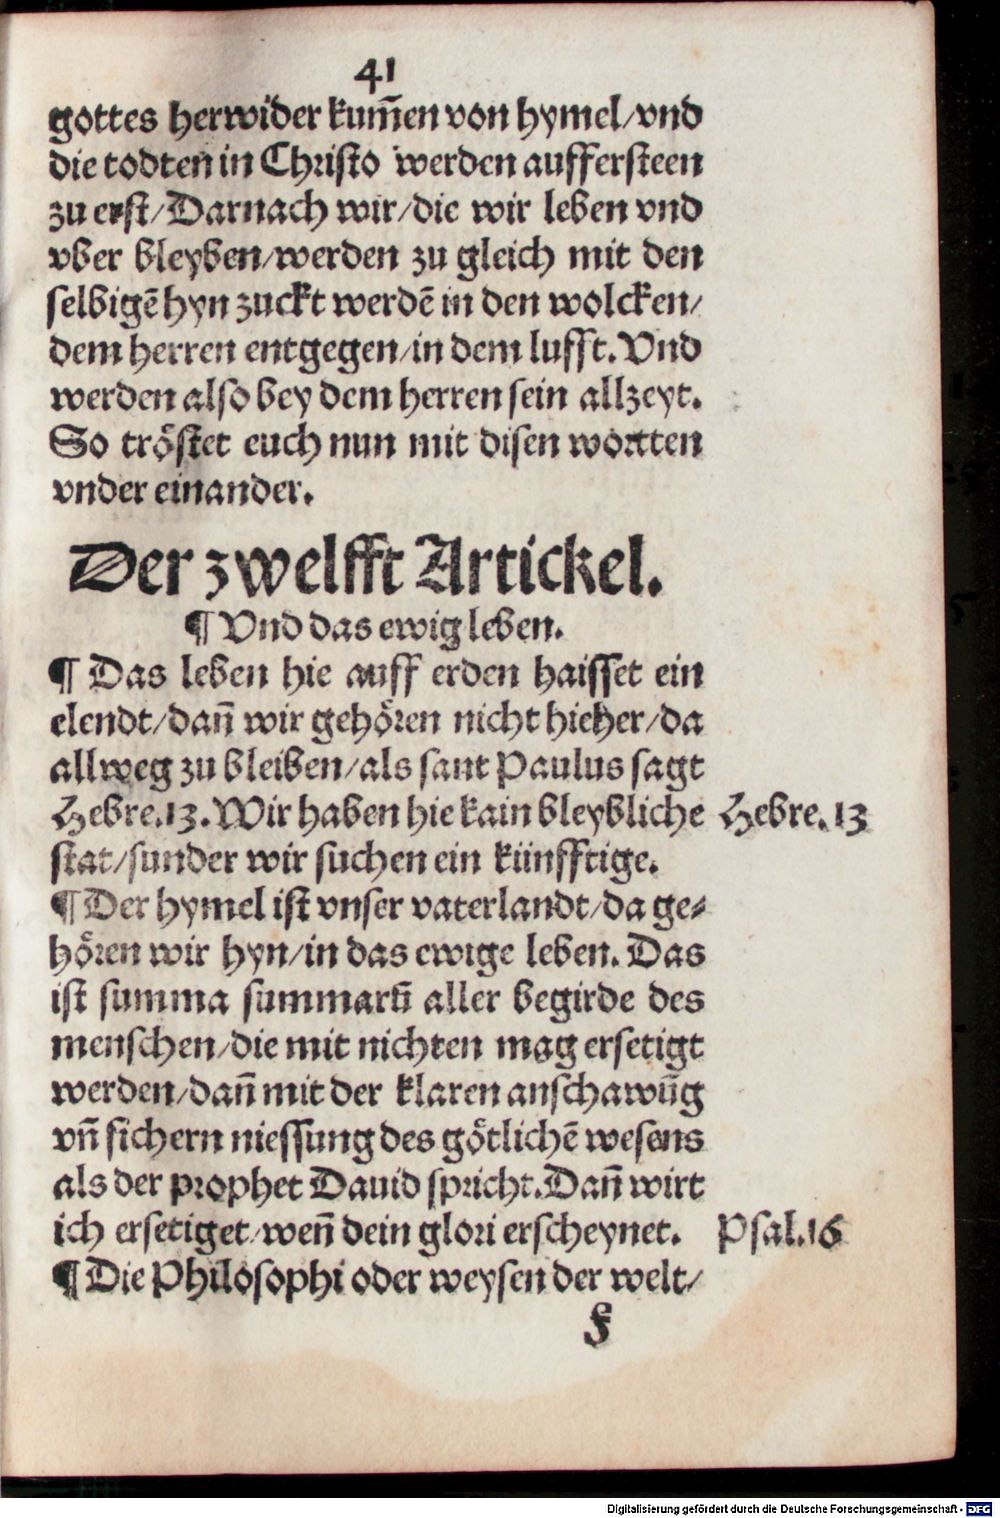 41
gottes herwider kum̄en von hymel/vnd
die todten in Christo werden aufferſteen
zu erſt/Darnach wir/die wir leben vnd
vber bleyben/werden zu gleich mit den
ſelbigē hyn zuckt werdē in den wolcken/
dem herren entgegen/in dem lufft. Vnd
werden alſo bey dem herren ſein allzeyt.
So tröſtet euch nun mit diſen wortten
vnder einander.
Der zwelfft Artickel.
¶ Vnd das ewig leben.
¶ Das leben hie auff erden haiſſet ein
elendt/dan̄ wir gehören nicht hieher/da
allweg zu bleiben/als sant Paulus ſagt
Hebre.13. Wir haben hie kain bleybliche Hebre.13
ſtat/ſunder wir ſuchen ein künfftige.
¶ Der hymel iſt vnſer vaterlandt/da ge⸗
hören wir hyn/in das ewige leben. Das
iſt ſumma ſummarū aller begirde des
menſchen/die mit nichten mag erſetigt
werden/dan̄ mit der klaren anſchawūg
vn̄ ſichern nieſſung des götlichē weſens
als der prophet Dauid ſpricht. Dan̄ wirt
ich erſetiget/wen̄ dein glori erſcheynet. Pſal.16
¶ Die Philoſophi oder weyſen der welt/
F
Digitalisierung gefördert durch die Deutsche Forschungsgemeinschaft - DFG